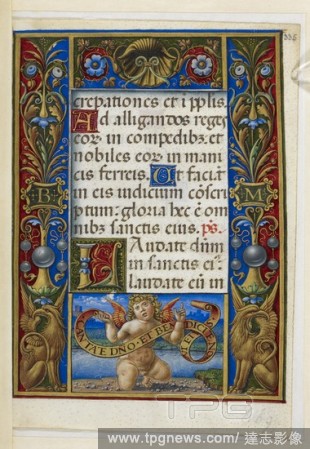 crepationes et i pplis.
Ad alligandos reges
eoꝝ in compedibꝫ et
nobiles eoꝝ in mani
cis ferreis. Ut faciāt
eis iudicium cōscri
ptum: gloria hec ē om
nibꝫ sanctis eius. ps.
Laudate dūm
in sanctis eiꝰ
laudate eū in
B M
DNO ET BE
TPG
www.tpgnews.com/ 達志影像